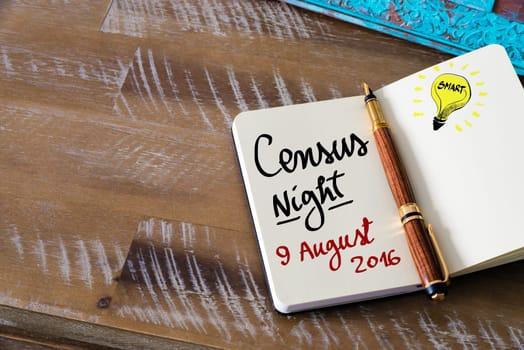 Census
Night
9 August
2016
SMART